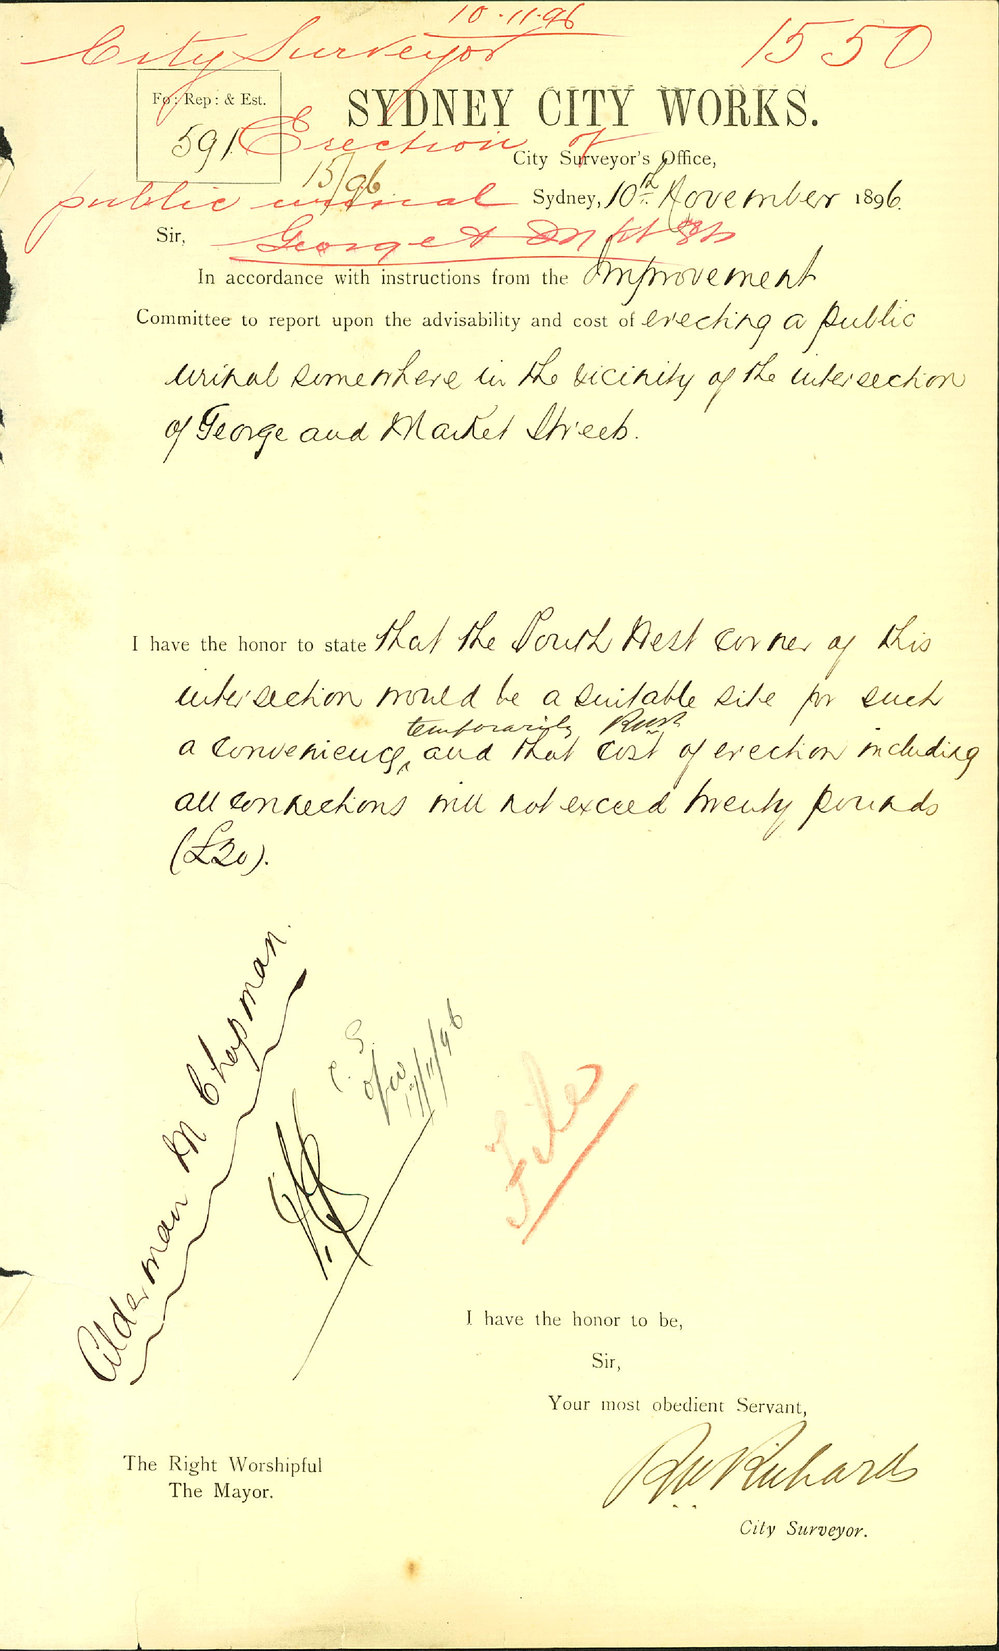 10.11.96
City Surveyor
1550
Fo: Rep: & Est.
591
15/96
SYDNEY CITY WORKS.
Erection of
City Surveyor's Office,
public urinal
Sydney, 10th November 1896.
Sir,
George & Mkt Sts
In accordance with instructions from the Improvement
Committee to report upon the advisability and cost of erecting a public
urinal somewhere in the vicinity of the intersection
of George and Market Streets.
I have the honor to state that the South West corner of this
intersection would be a suitable site for such
temporarily
a convenience, and that cost of erection including
all connections will not exceed twenty pounds
(£20).
Alderman M Chapman.
C. S.
17/11/96
File
I have the honor to be,
Sir,
Your most obedient Servant,
RW Richards
The Right Worshipful
The Mayor.
City Surveyor.